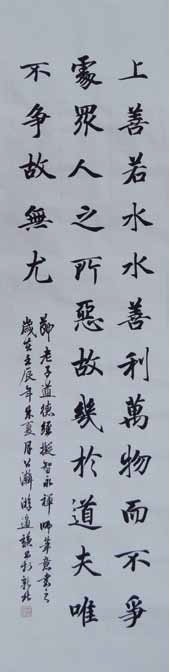 上善若水水善利萬物而不爭
處眾人之所惡故幾於道夫唯
不争故無尤
節老子道德經擬智永禪師筆意書之
歲在壬辰年朱夏居公瀞游遠